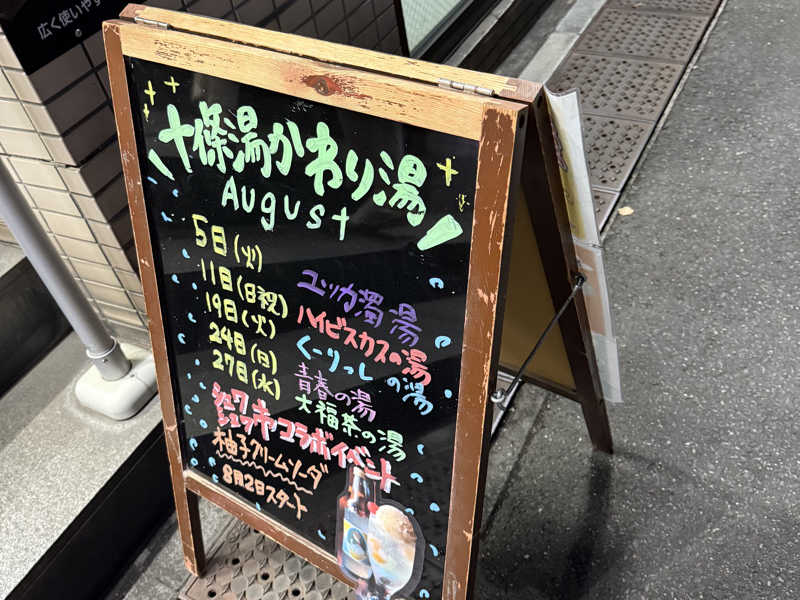 広く使いやす
十條湯かわり湯
August
5日(火) ユッカ濁湯
11日(日祝) ハイビスカスの湯
19日(火) くーりっしの湯
24日(日) 青春の湯
27日(水) 大福茶の湯
コラボイベント
柚子クリームソーダ
8月2日スタート